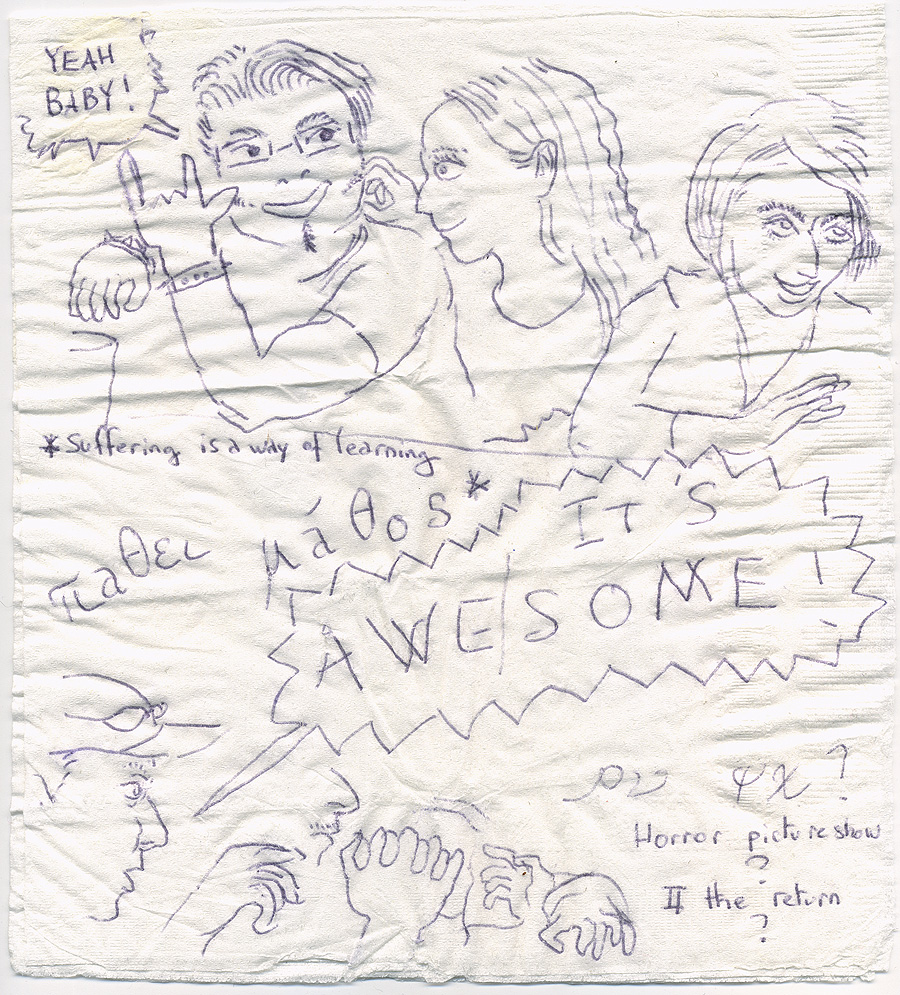 YEAH
BABY!
*Suffering is a way of learning
παθει μάθος*
IT'S
AWESOME!
ψχ?
Horror picture show
?
II the return
?